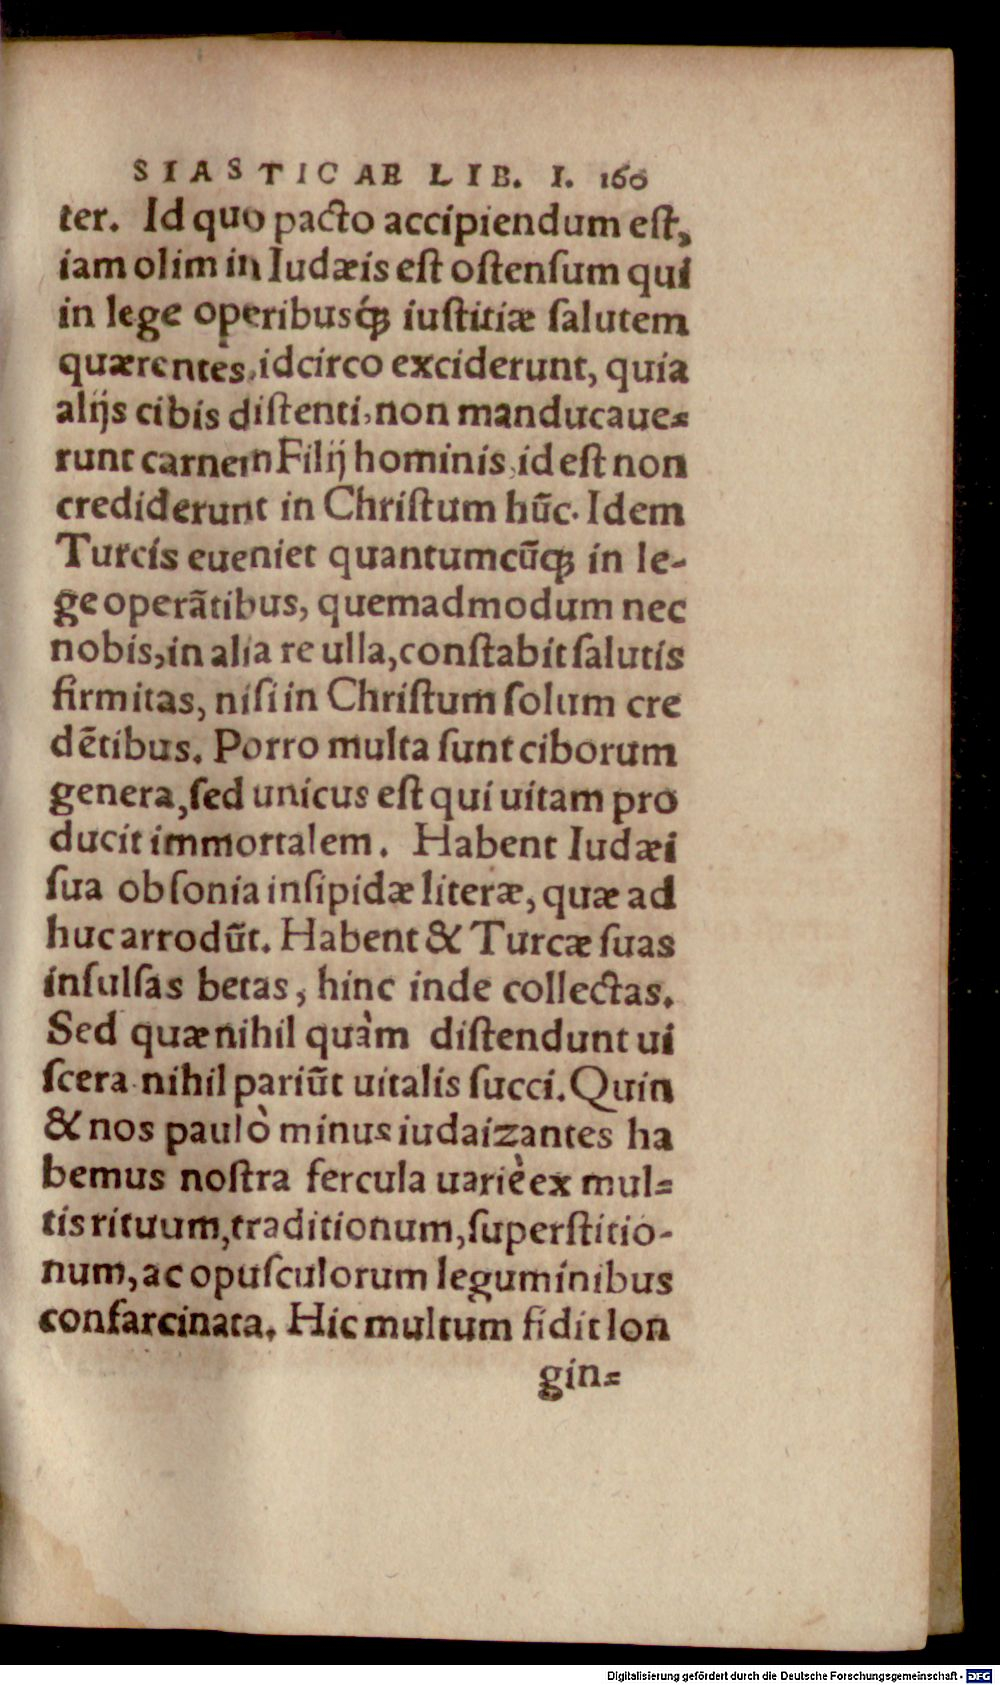 SIASTICAE LIB. I. 160
ter. Id quo pacto accipiendum eſt,
iam olim in Iudæis eſt oſtenſum qui
in lege operibusq́ꝫ iuſtitiæ ſalutem
quærentes, idcirco exciderunt, quia
alijs cibis diſtenti, non manducaue⸗
runt carnem Filij hominis, id eſt non
crediderunt in Chriſtum hūc. Idem
Turcis eueniet quantumcūqꝫ in le-
ge operātibus, quemadmodum nec
nobis, in alia re ulla, conſtabit ſalutis
firmitas, niſi in Chriſtum ſolum cre
dētibus. Porro multa ſunt ciborum
genera, ſed unicus eſt qui uitam pro
ducit immortalem. Habent Iudæi
ſua obſonia inſipidæ literæ, quæ ad
huc arrodūt. Habent & Turcæ ſuas
inſulſas betas, hinc inde collectas.
Sed quæ nihil quàm diſtendunt ui
ſcera nihil pariūt uitalis ſucci. Quin
& nos paulò minus iudaizantes ha
bemus noſtra fercula uariè ex mul⸗
tis rituum, traditionum, ſuperſtitio-
num, ac opuſculorum leguminibus
confarcinata. Hic multum fidit lon
gin⸗
Digitalisierung gefördert durch die Deutsche Forschungsgemeinschaft - DFG